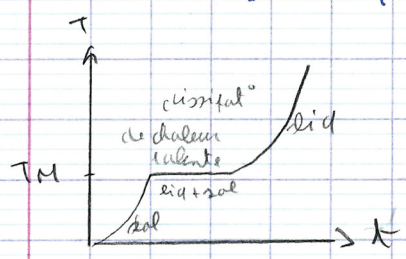 T
dissipat°
de chaleur
latente
liq
TM
liq + sol
sol
t